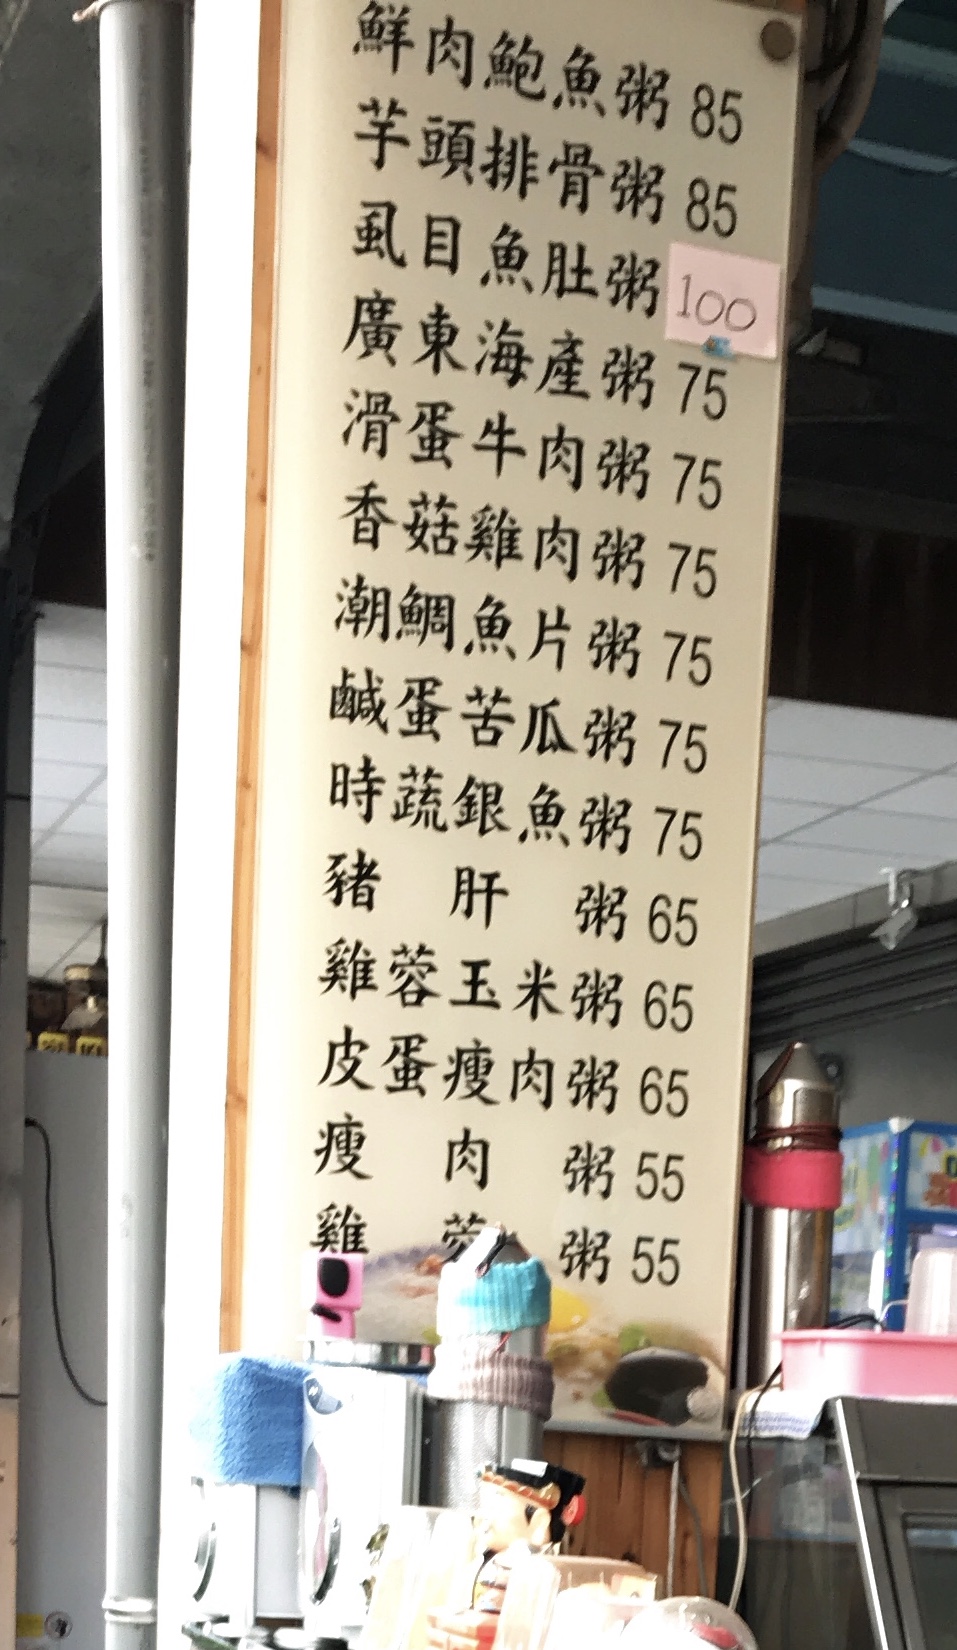 鮮肉鮑魚粥 85
芋頭排骨粥 85
虱目魚肚粥 100
廣東海產粥 75
滑蛋牛肉粥 75
香菇雞肉粥 75
潮鯛魚片粥 75
鹹蛋苦瓜粥 75
時蔬銀魚粥 75
豬肝粥 65
雞蓉玉米粥 65
皮蛋瘦肉粥 65
瘦肉粥 55
雞蓉粥 55